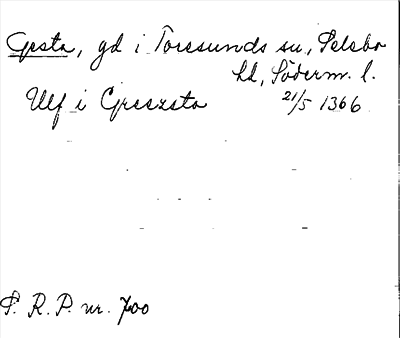 Gesta, gd i Toresunds sn, Selebo
hd, Söderm. l.
Ulf i Greszsta 21/5 1366
S. R. P. nr. 700